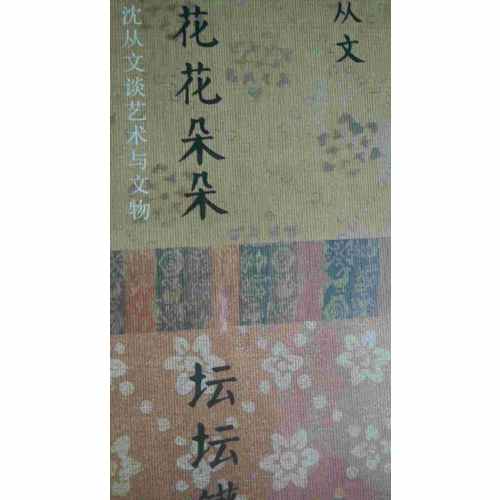 从文
花花朵朵
坛坛
沈从文谈艺术与文物